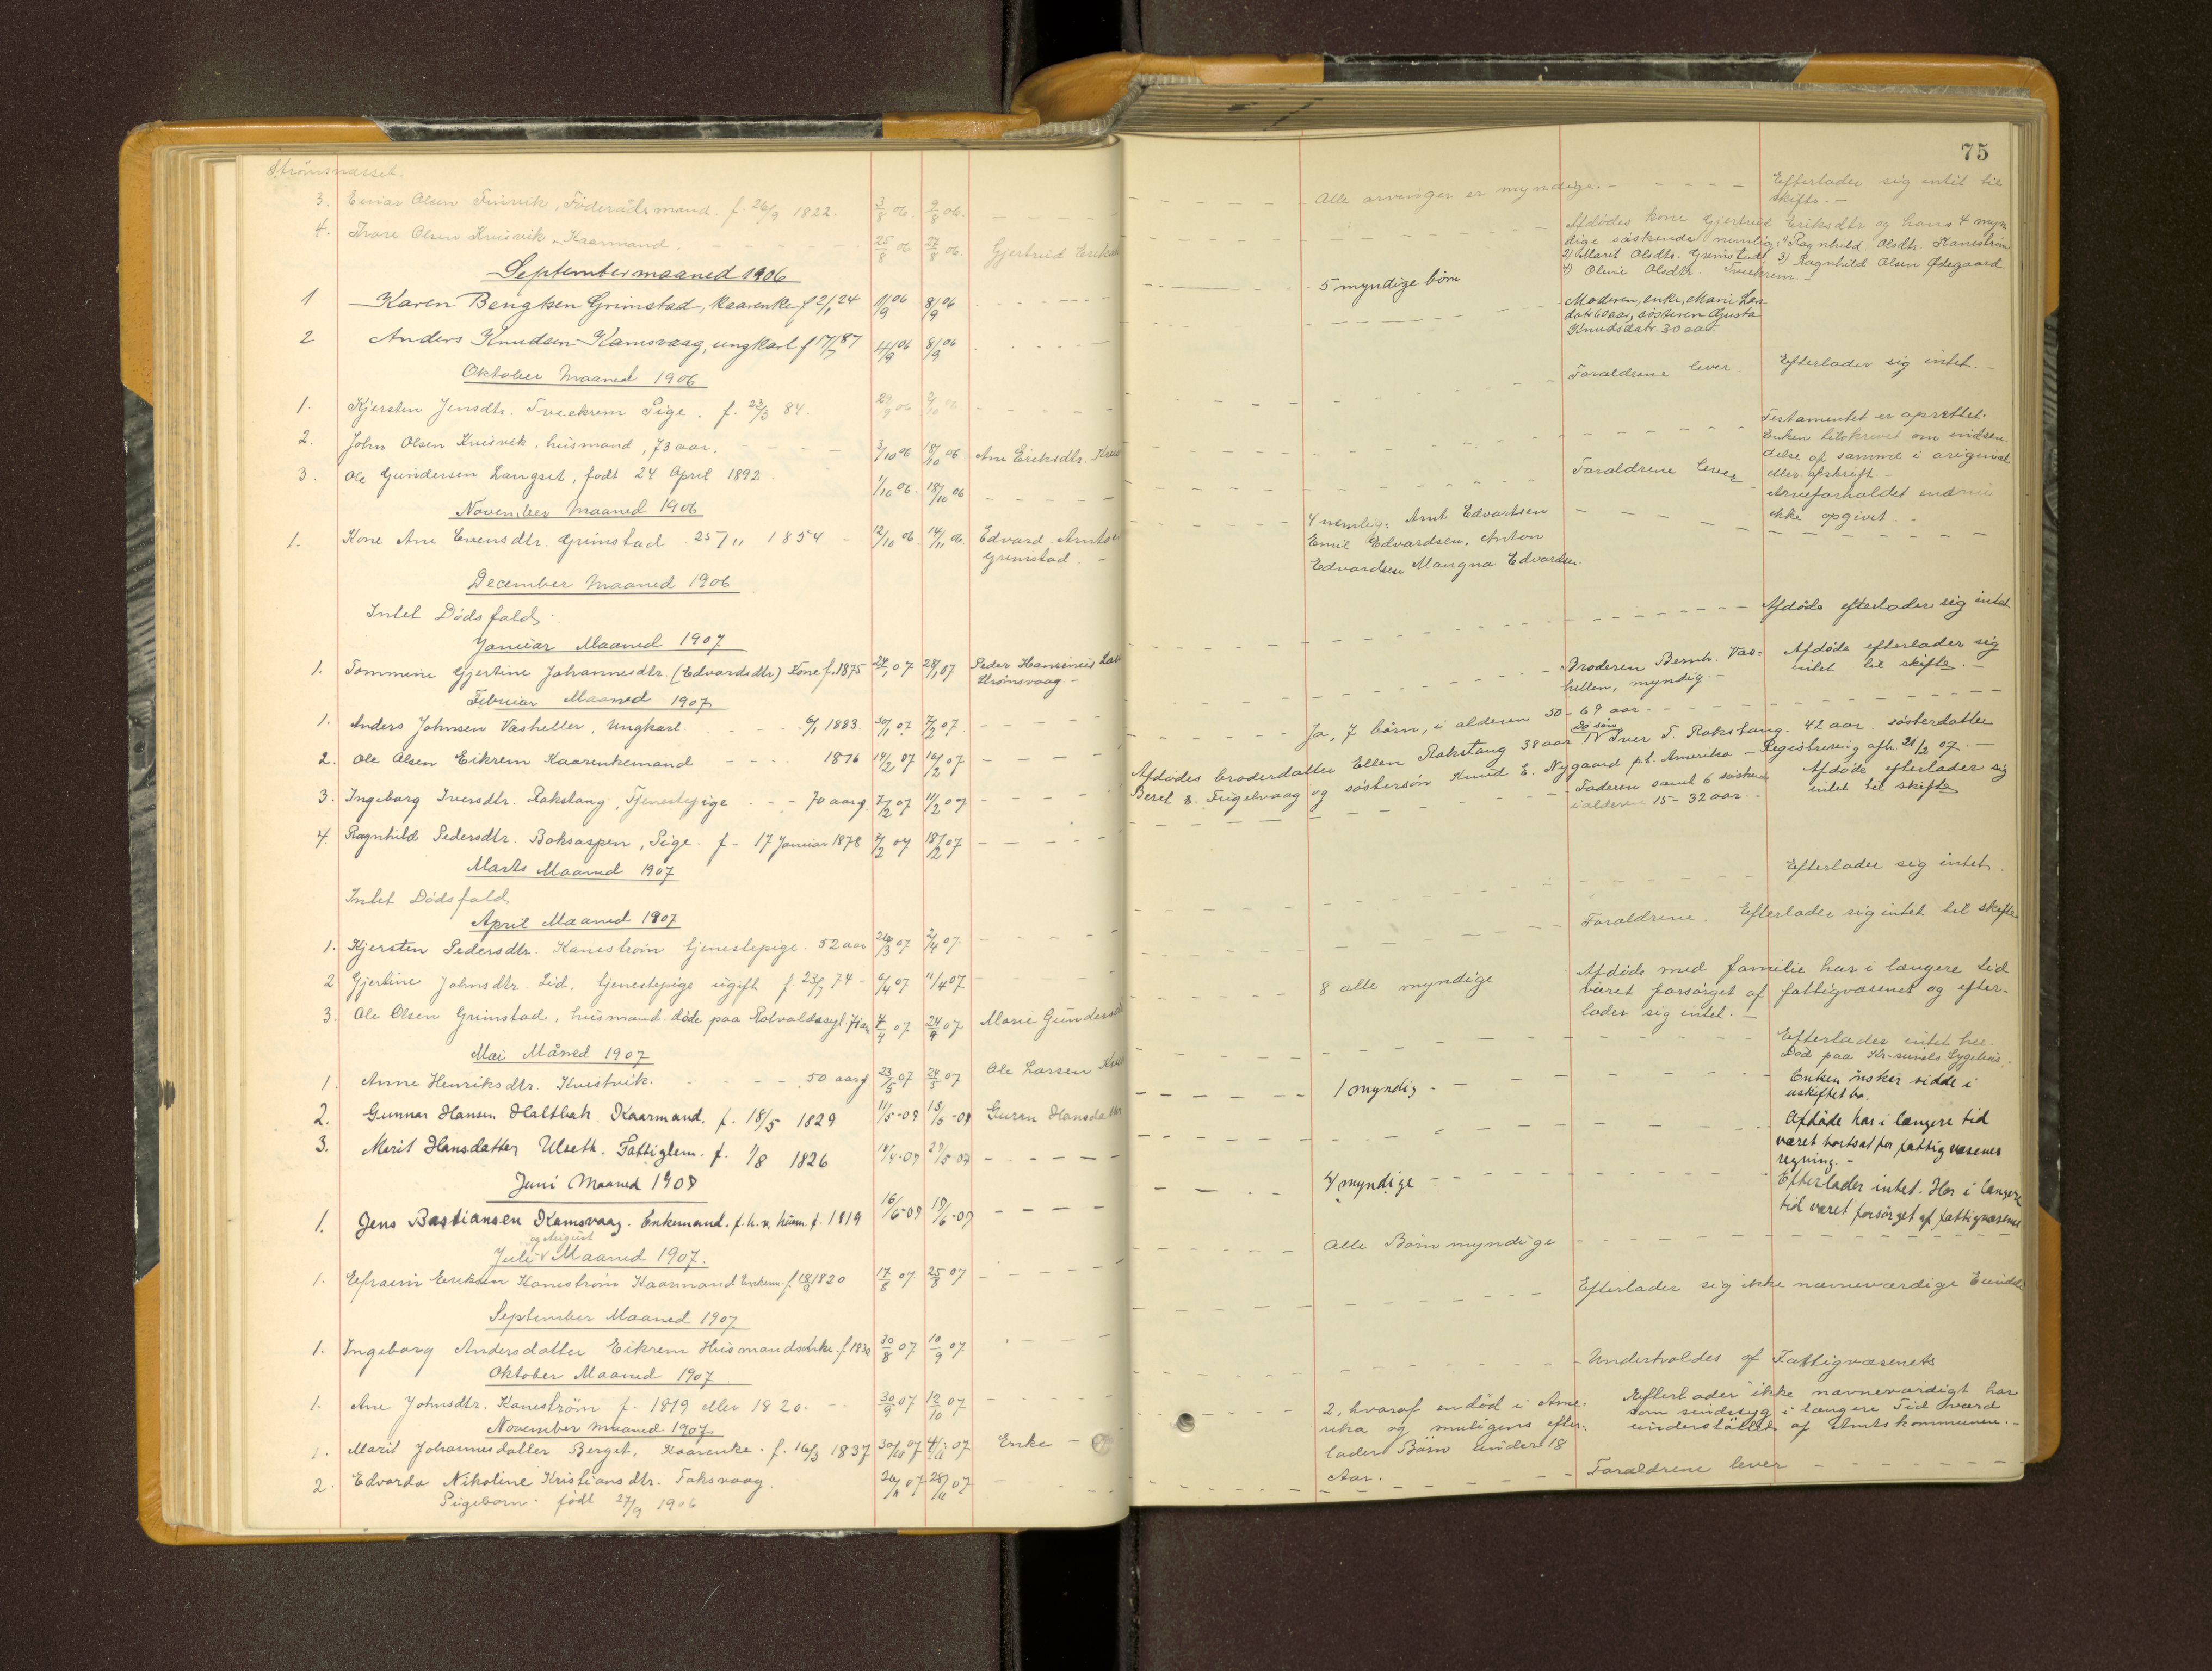 Strømsnæsset.
3. Einar Olsen Fuirvik, Föderådsmand. f. 26/9 1822. 3/8 06. 9/8 06.
4. Olsen Kvisvik Kaarmand. 25/8 06 27/8 06. Gjertrud
September maaned 1906
1 Karen Bengtsen Grimstad, kaarenke f 2/1 24 1/9 06 8/9 06
2 Anders Knudsen Kamsvaag, ungkarl f 17/7 87 4/9 06 8/9 06
Oktober Maaned 1906
1. Kjersten Jensdtr. Tveekrem Pige. f. 23/3 84.
2. John Olsen Kvisvik. husmand, 73 aar. 3/10 06 18/10 06. Ane Eriksdtr.
3. Ole Gundersen Langset, født 24 April 1892. 1/10 06. 18/10 06
November Maaned 1906
1. Kone Ane Evensdtr. Grimstad 25/11 1854 12/10 06. 14/11 06. Edvard
Grimstad.
December Maaned 1906
Intet Dødsfald.
Januar Maaned 1907
1. Tommine Gjertine Johannesdtr. (Edvardsdtr) Kone f. 1875 24/1 07 28/1 07 Peder Hansinius
Strømsvaag.
Februar Maaned 1907
1. Anders Johnsen Vasheller, Ungkarl. 6/1 1883. 30/1 07. 7/2 07.
2. Ole Olsen Eikrem Kaarenkemand 1816 14/2 07 16/2 07
3. Ingeborg Iversdtr. Rokstang, Tjenestepige 70 aar g. 7/2 07 11/2 07
4. Ragnhild Pedersdtr. Boksaspen, Pige. f - 17 Januar 1878 18/2 07
Marts Maaned 1907
Intet Dødsfald
April Maaned 1907
1. Kjersten Pedersdtr. Kanestrøm tjenestepige. 52 aar 26/3 07 2/4 07.
2 Gjertine Johnsdtr. Lid. tjenestepige ugift f. 23/7 74 - 6/4 07 11/4 07
3. Ole Olsen Grimstad, husmand. døde paa 4/4 07 24/9 07 Marie
Mai Måned 1907
1. Anne Henriksdtr. Kvistvik. 50 aar g 23/5 07 24/5 07 Ole Larsen
2. Gunnar Hansen Haltbak. Kaarmand. f. 18/5 1829 11/5-07 Guren
3. Merit Hansdatter Ulseth. Fattiglem. f. 1/8 1826
Juni Maaned 1907
1. Jens Bastiansen Kamsvaag. Enkemand. f. h. v. f. 1819 16/6-07 19/6-07
og August
Juli Maaned 1907.
1. Efraim Eriksen Kanestrøm Kaarmand Enkem. f. 18/3 1820 17/8 07. 25/8 07
September Maaned 1907
1. Ingeborg Andersdatter Eikrem Husmandsenke. 30/8 07 10/9 07
Oktober Maaned 1907
1. Ane Johnsdtr. Kanestrøm f - 1819 eller 1820. 30/9 07 12/10 07
November Maaned 1907.
1. Marit Johannesdatter Berget, Kaarenke. f. 16/3 1837 30/10 07 4/11 07 Enke
2. Edvarda Nikoline Kristiansdtr. Foksvaag. 26/11 07 28/11 07
Pigebarn. født 27/9 1906
75
Alle arvinger er myndige. Efterlader sig intet til
skifte.
Afdødes kone Gjertrud Eriksdtr og hans 4 myn
dige søskende nemlig: 1) Ragnhild Olsdtr. Kanestrøm
2) Marit Olsdtr. Grimstad 3) Ragnhild Olsen Ødegaard
4) Oline Olsdtr. Tveekrem.
5 myndige børn
Moderen, enke, Marie
60 aar, søsteren Gusta
Knudsdatr. 30 aar.
Foraldrene lever. Efterlader sig intet.
Testamentet er oprettet.
Enken tilskrevet om indsen
delse af samme i original
eller afskrift.
Foraldrene lever
Arveforholdet endnu
ikke opgivet.
4 nemlig: Arnt Edvartsen
Emil Edvardsen, Anton
Edvardsen Mangna Edvardsen.
Afdøde efterlader sig intet
Broderen Bernh. Vas-
hellen, myndig. Afdøde efterlader sig
intet til skifte.
Ja, 7 børn, i alderen 50 - 69 aar.
Afdødes broderdatter Ellen Rokstang 38 aar Iver T. Rokstang. 42 aar. søsterdatter
Beret E. Fugelvaag og søstersøn Knud E. Nygaard pt. Amerika - Registrering afh. 21/2 07.
Faderen samt 6 søskend
i alderen 15 - 32 aar. Afdøde efterlader sig
intet til skifte
Efterlader sig intet.
Foraldrene. Efterlader sig intet til skifte
8 alle myndige Afdøde med familie har i længere tid
været forsørget af fattigvæsenet og efter-
lader sig intet.
Efterlader intet her.
Død paa Kr-sunds Sygehus.
1 myndig Enken ønsker sidde i
uskiftet bo.
Afdøde har i længere tid
været bortsat for fattigvæsenets
regning.
4 myndige Efterlader intet. Har i længere
tid været forsørget af fattigvæsenet
Alle Børn myndige
Efterlader sig ikke nævneværdige
Underholdes af Fattigvæsenets
2, hvoraf en død i Ame-
rika og muligens efter-
lader Børn under 18
Aar.
Efterlader ikke nævneværdigt har
som sindssyg i længere Tid værd
understøttet af Amtskommunen.
Foraldrene lever